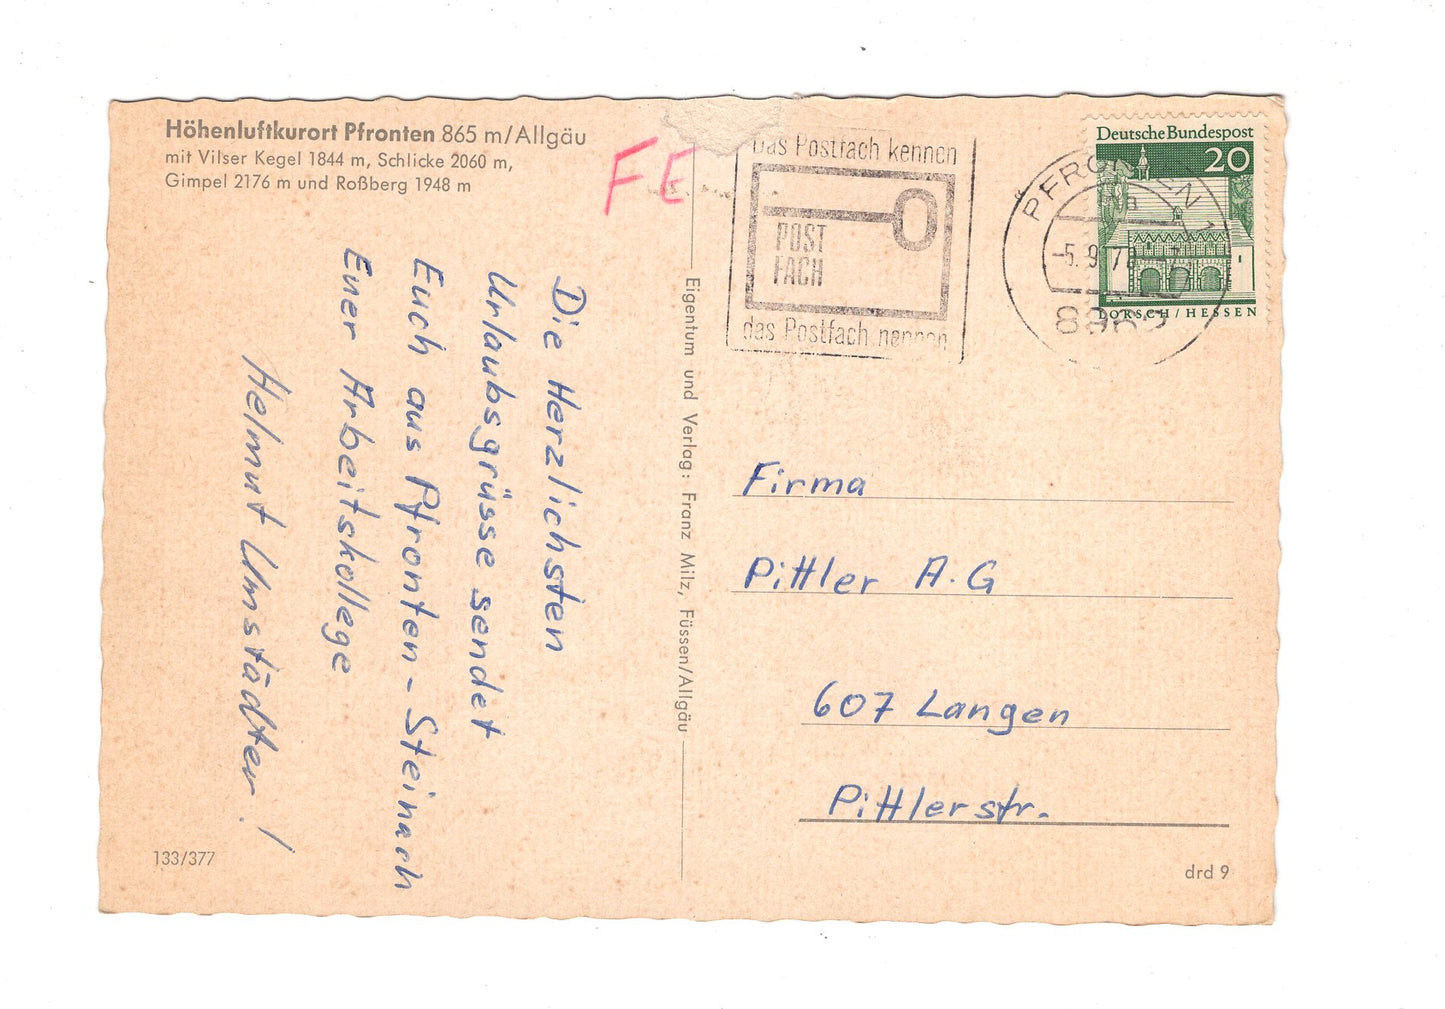 Höhenluftkurort Pfronten 865 m/Allgäu
mit Vilser Kegel 1844 m, Schlicke 2060 m,
Gimpel 2176 m und Roßberg 1948 m
FE
Die Herzlichsten
Urlaubsgrüsse sendet
Euch aus Pfronten-Steinach
Euer Arbeitskollege
Helmut Umstädter!
133/377
Eigentum und Verlag: Franz Milz, Füssen/Allgäu
Das Postfach kennen
POST
FACH
das Postfach nennen
PFRONTEN 1
a
-5.9.7
896
Deutsche Bundespost
20
LORSCH/HESSEN
Firma
Pittler A.G
607 Langen
Pittlerstr.
drd 9